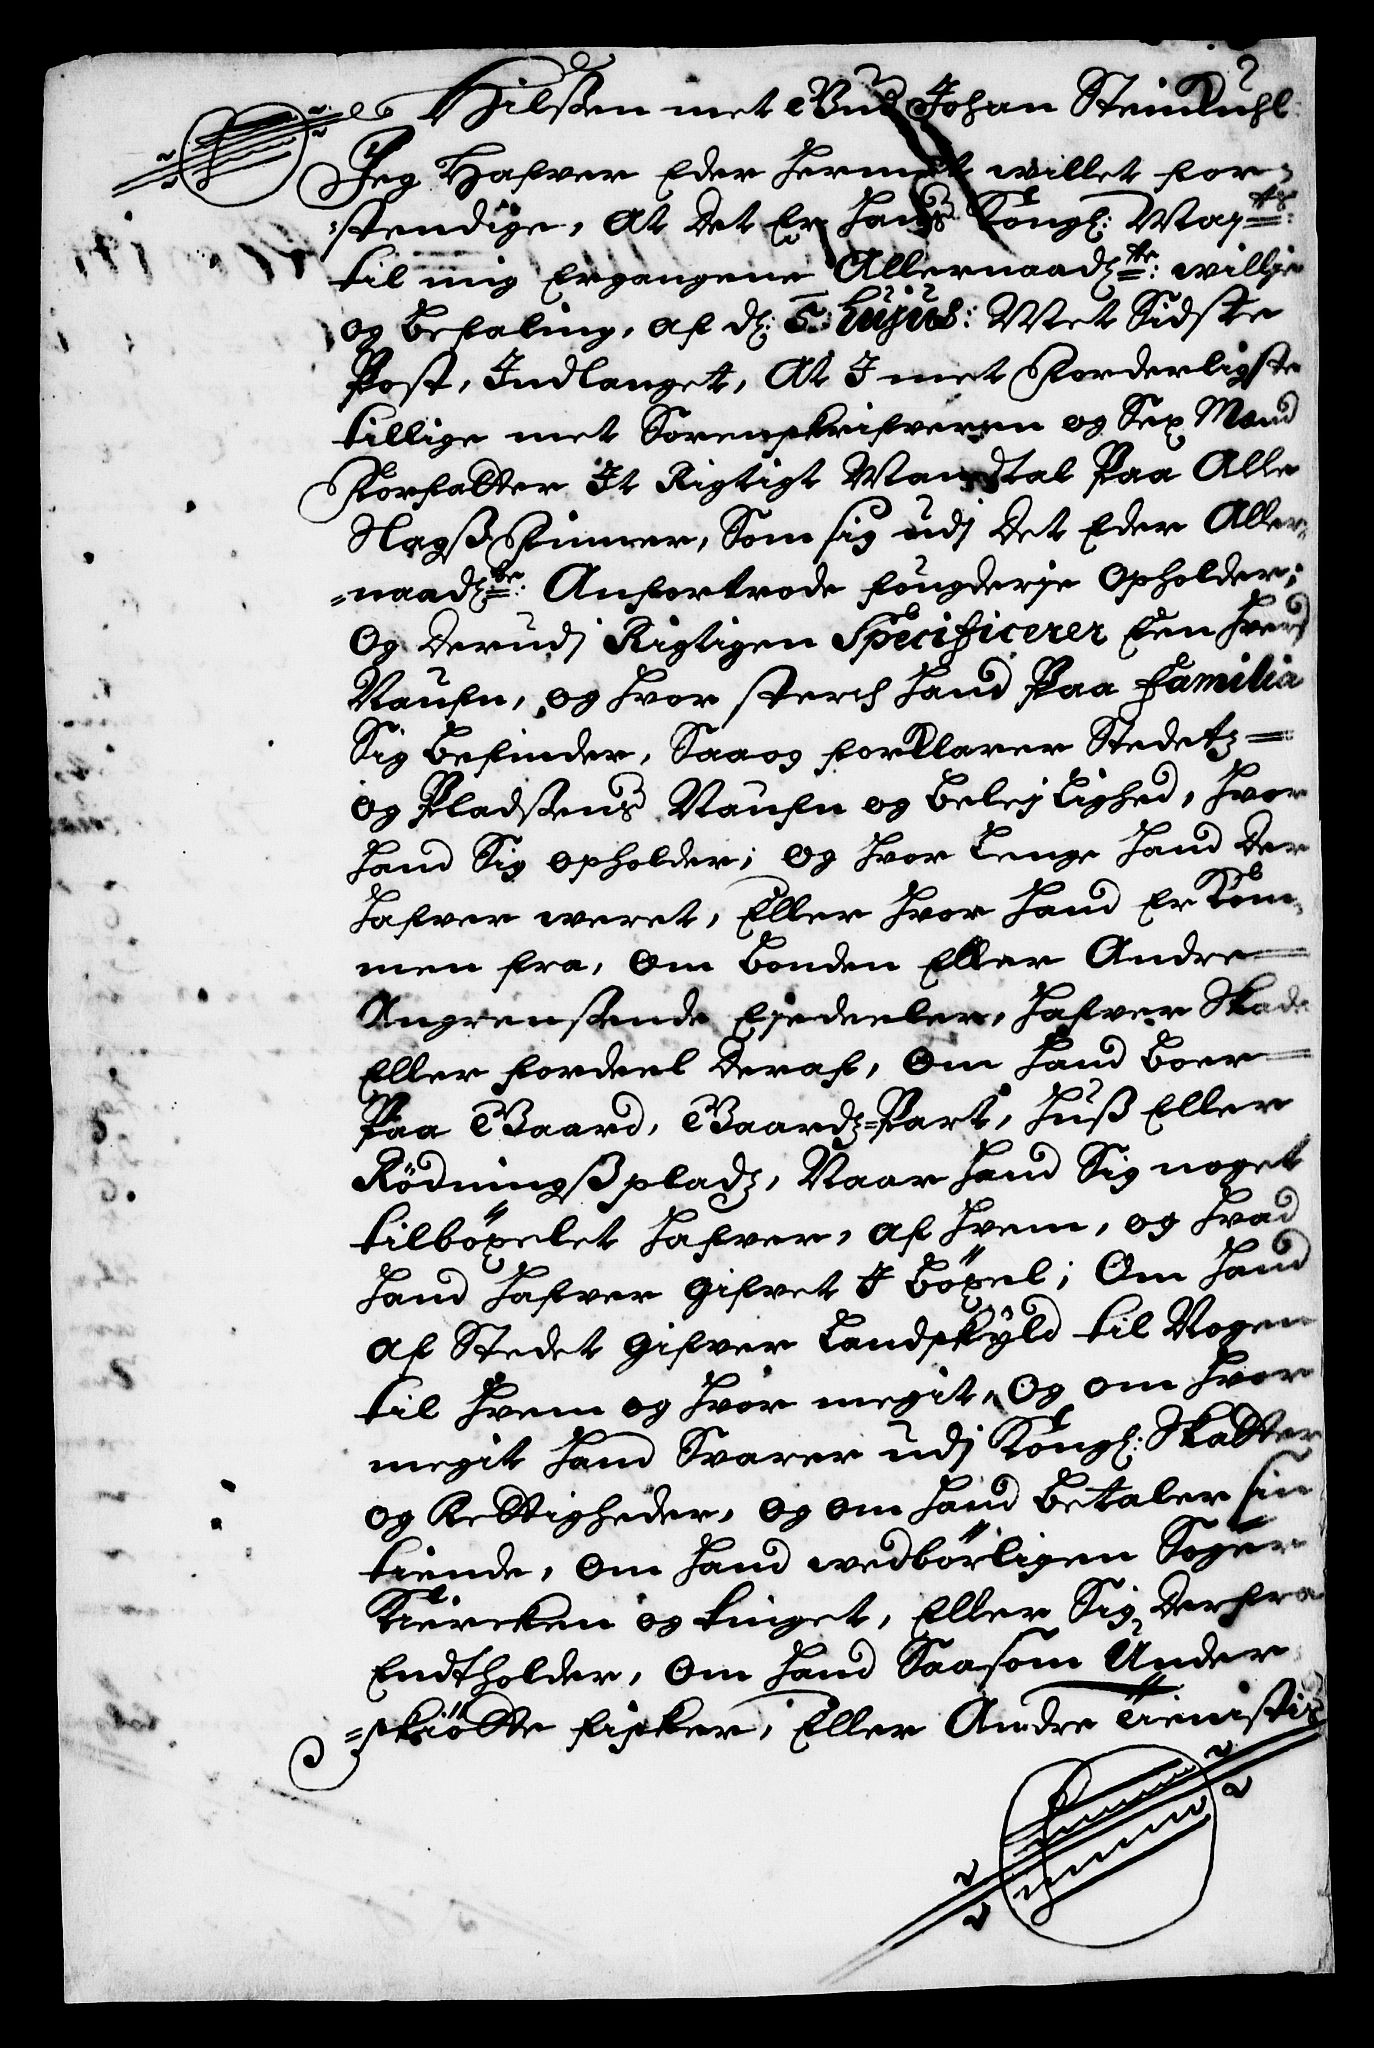 Hilssen met Gud Johan Steinkuhl:
Jeg Hafver Eder Hermet willet for-
:stendige, At det Er Hans Kongl: May:ts:
til mig Ergangene Allernaadg:ste: willje
og Befaling, af dj: 5: hujus: Met Sidste
Post, Indlanget, At I met Forderligste
tillige met Sorenskrifveren og Sex Mænd
Forfatter It Rigtigt Mandtal Paa Alle
Slagss Finner, Som sig udj det Eder Aller-
=naadg:ste: Anfortrode fougderje Opholder;
Og derudj Rigtigen Specificerer Een hvers
Naufn, og hvor sterch hand Paa Familia
Sig befinder, Saaog forklarer Stedetz=
og Pladssens Naufn og belejlighed, hvor
hand Sig opholder; og hvor lenge hand der
hafver weret, Eller hvor hand Er Kom-
men fra, Om bonden Eller Andre=
Angrenssende Ejedeeler, hafver Skade
Eller fordeel deraf, Om hand boer=
Paa Gaard, Gaardz=Part, Huss Eller
Rödningsspladz, Naar hand Sig noget
tilböxelet hafver, af hvem, og hvad
hand hafver gifvet I böxel; Om hand
af Stedet gifver Landskÿld til Nogen
til hvem og hvor megit, Og om hvor
megit hand Svarer udj Kongl: Skatter
og Rettigheder, og om hand betaler sin
tiende, Om hand wedbörligen Søger
Kiercken og tinget, Eller Sig derfra
Endtholder, Om hand Saasom Under
=skiötte fisker, Eller Andre Tienistis